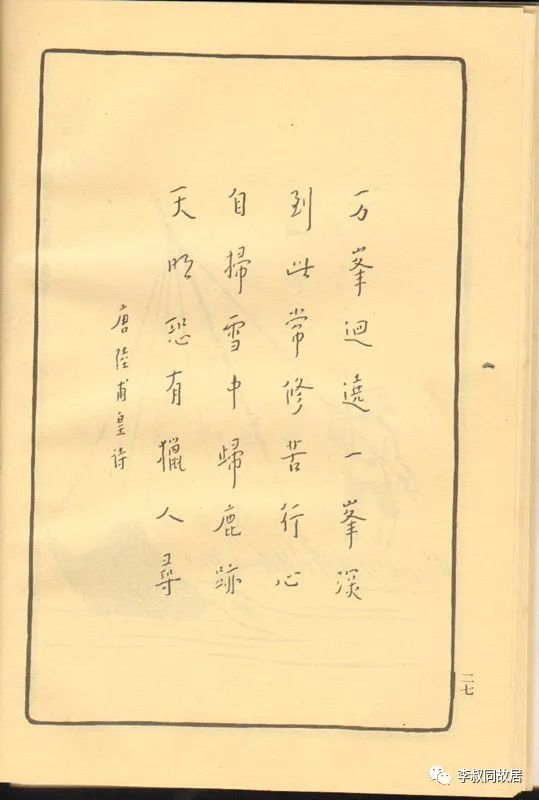 万峯迴遶一峯深
到此常修苦行心
自掃雪中歸鹿跡
天明恐有獵人尋
唐陸甫皇诗
二七
李叔同故居